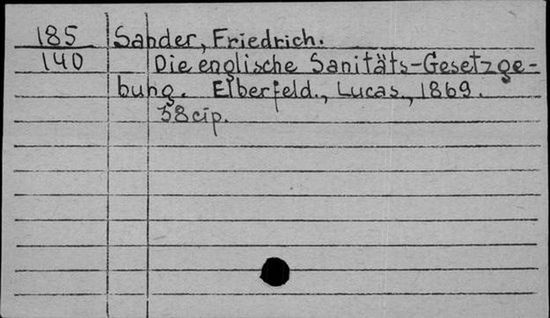 185 Sander, Friedrich.
140 Die englische Sanitäts-Gesetzge-
bung. Elberfeld., Lucas., 1869.
38cip.